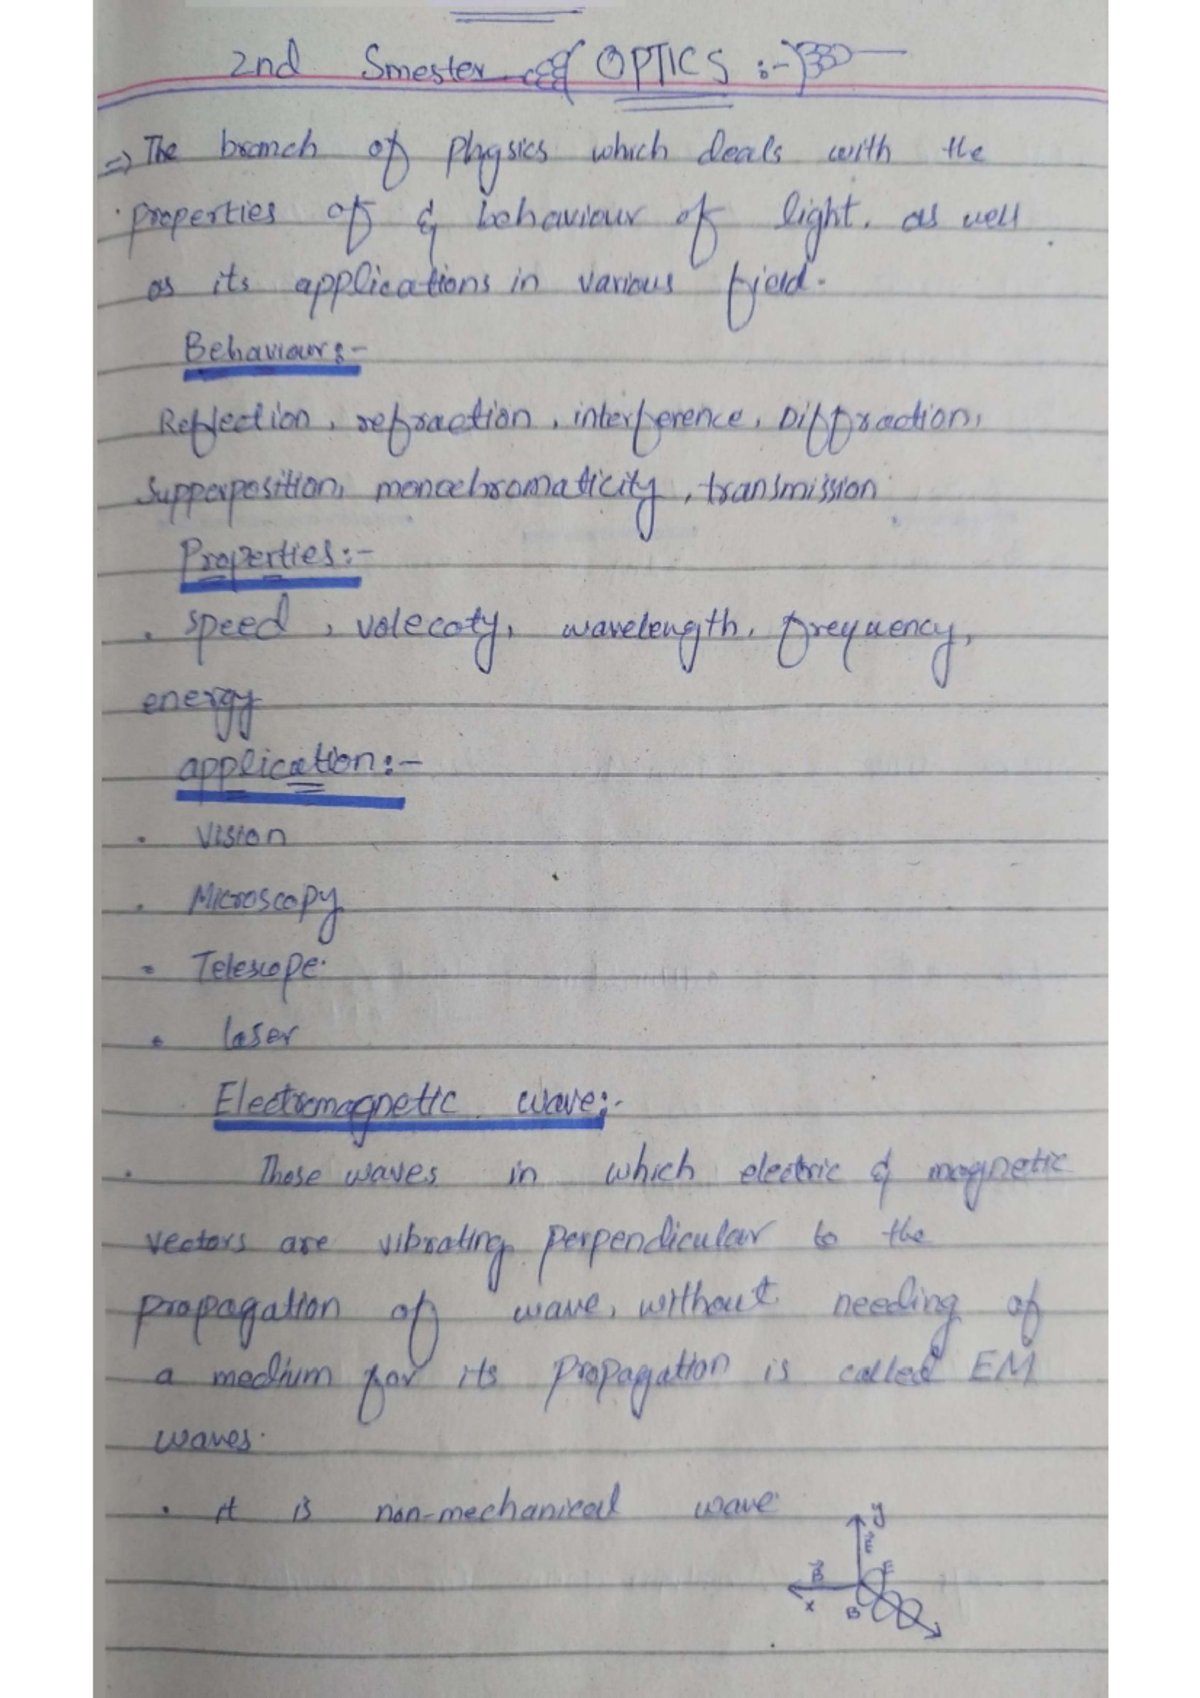 2nd Smester OPTICS :-
=> The branch of physics which deals with the
properties of & behaviour of light. as well
as its applications in various field.
Behaviour:-
Reflection, refraction, interference, Diffraction,
Supperposition, monochromaticity, transmission
Properties:-
. speed, volecoty, wavelength, frequency,
energy
application:-
. Vision
. Microscopy
. Telescope.
. laser
Electromagnetic wave:-
. Those waves in which electric & magnetic
vectors are vibrating perpendicular to the
propagation of wave, without needing of
a medium for its propagation is called EM
waves.
. it is non-mechanical wave
y
E
B E
x B